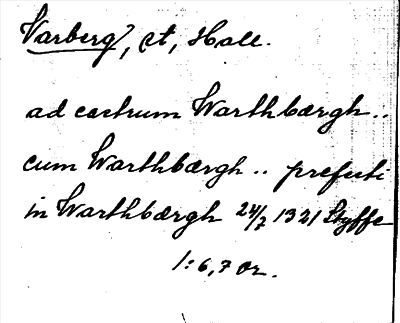 Varberg, st, Hall.
ad castrum Warthbærgh..
cum Warthbærgh.. prefecti
in Warthbærgh 24/7 1321 Styffe
1:6,7 or.